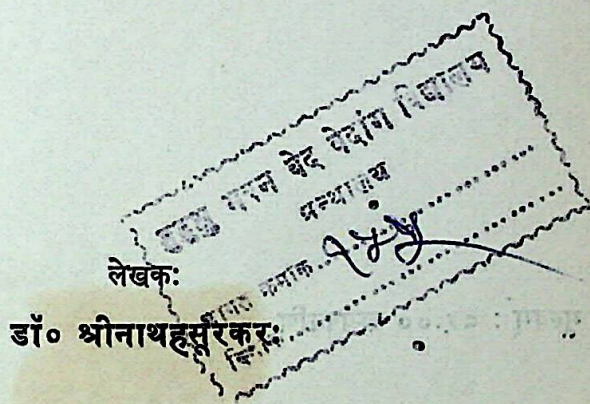 भवन वेद वेदांग विद्यालय
ग्रन्थालय
आगत क्रमांक
लेखकः
डॉ० श्रीनाथहसूरकरः